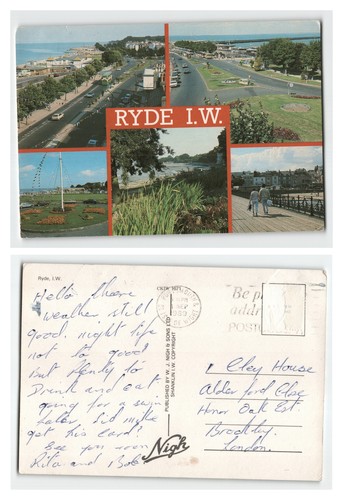 RYDE I.W.
Ryde, I.W.
Hello there
weather still
good. night life
not to good
but plenty to
Drink and eat
going for a swim
later. Sid might
get his card!
See you soon
Rita and Bob
PUBLISHED BY W. J. NIGH & SONS LTD.
SHANKLIN I.W. COPYRIGHT
Nigh
Be p
addre
POSTC
Cley House
Alderford Close
Honor Oak Est.
Brockley.
London.